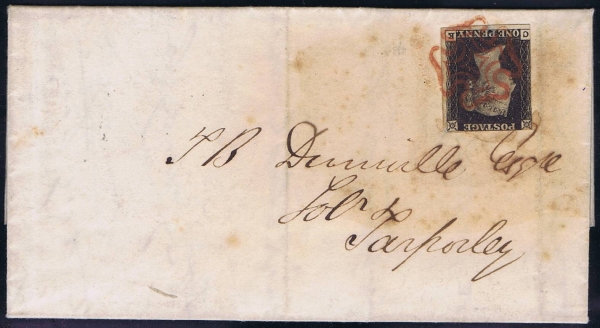 POSTAGE
ONE PENNY
J B Dunville Esqre
Solr
Tarporley